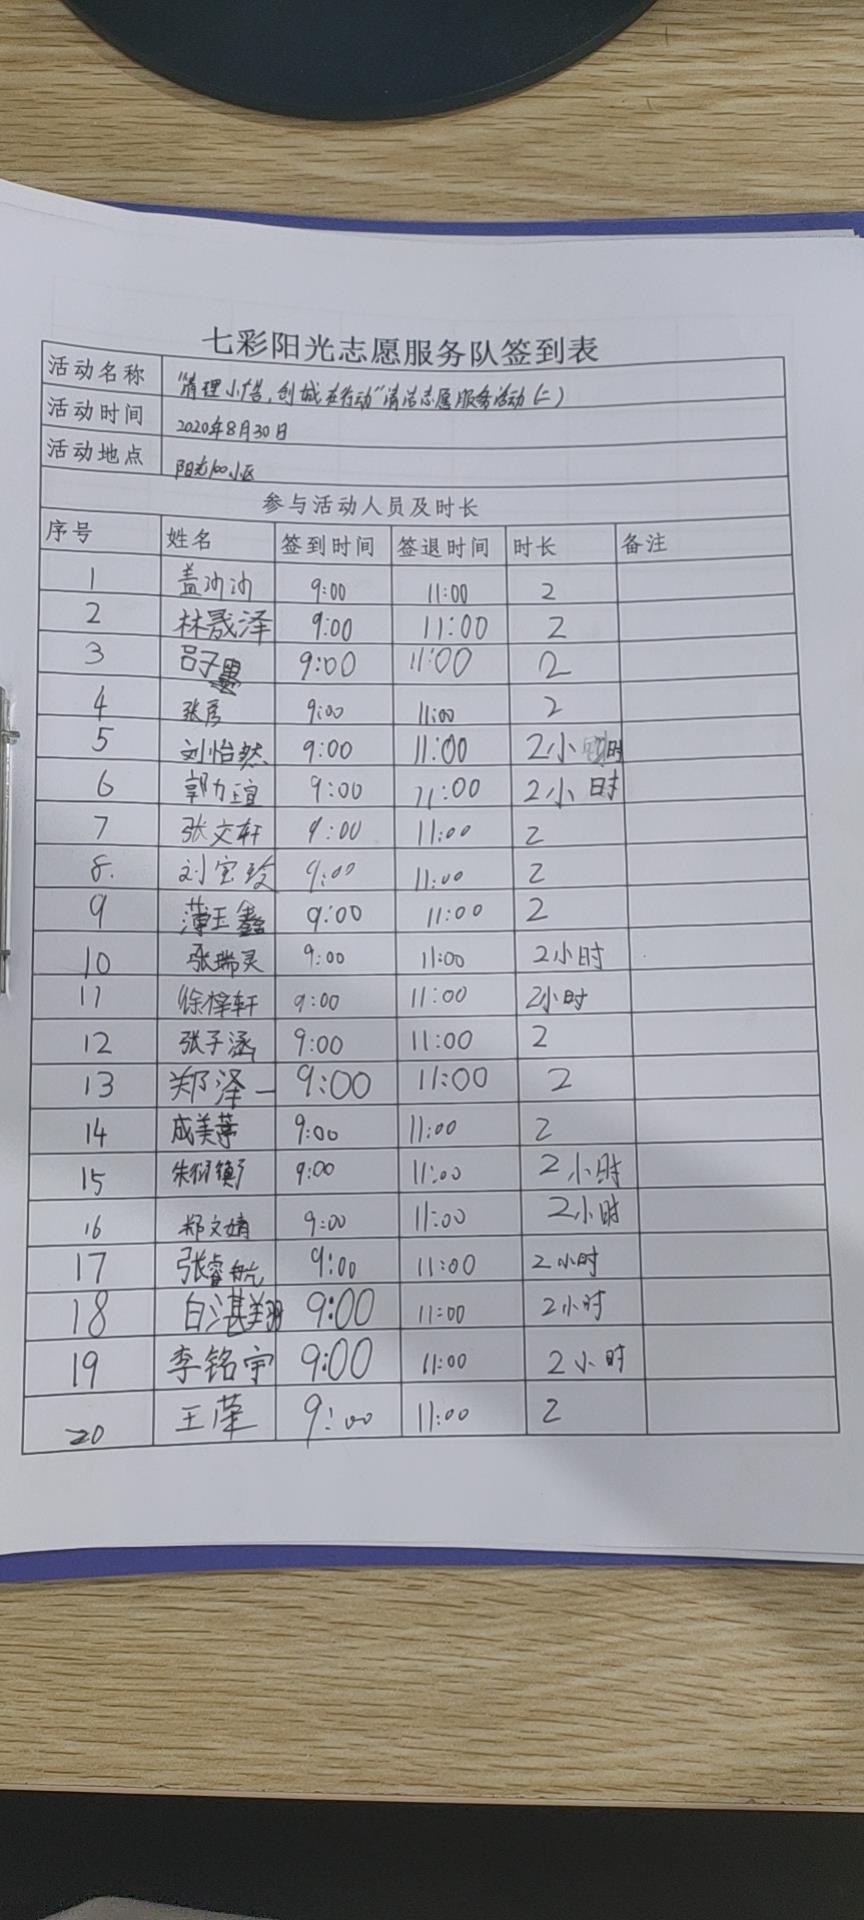 七彩阳光志愿服务队签到表
活动名称 "清理小广告，创城在行动"清洁志愿服务活动(二)
活动时间 2020年8月30日
活动地点 阳光100小区
参与活动人员及时长
序号 姓名 签到时间 签退时间 时长 备注
1 盖沙沙 9:00 11:00 2
2 林晟泽 9:00 11:00 2
3 吕子墨 9:00 11:00 2
4 张彦 9:00 11:00 2
5 刘怡然 9:00 11:00 2小时
6 郭力瑄 9:00 11:00 2小时
7 张文轩 9:00 11:00 2
8. 刘宝玫 9:00 11:00 2
9 薄玉鑫 9:00 11:00 2
10 张瑞灵 9:00 11:00 2小时
11 徐梓轩 9:00 11:00 2小时
12 张子涵 9:00 11:00 2
13 郑泽一 9:00 11:00 2
14 成美葶 9:00 11:00 2
15 9:00 11:00 2小时
16 郑文婧 9:00 11:00 2小时
17 张睿航 9:00 11:00 2小时
18 白湛翔 9:00 11:00 2小时
19 李铭宇 9:00 11:00 2小时
20 王荣 9:00 11:00 2